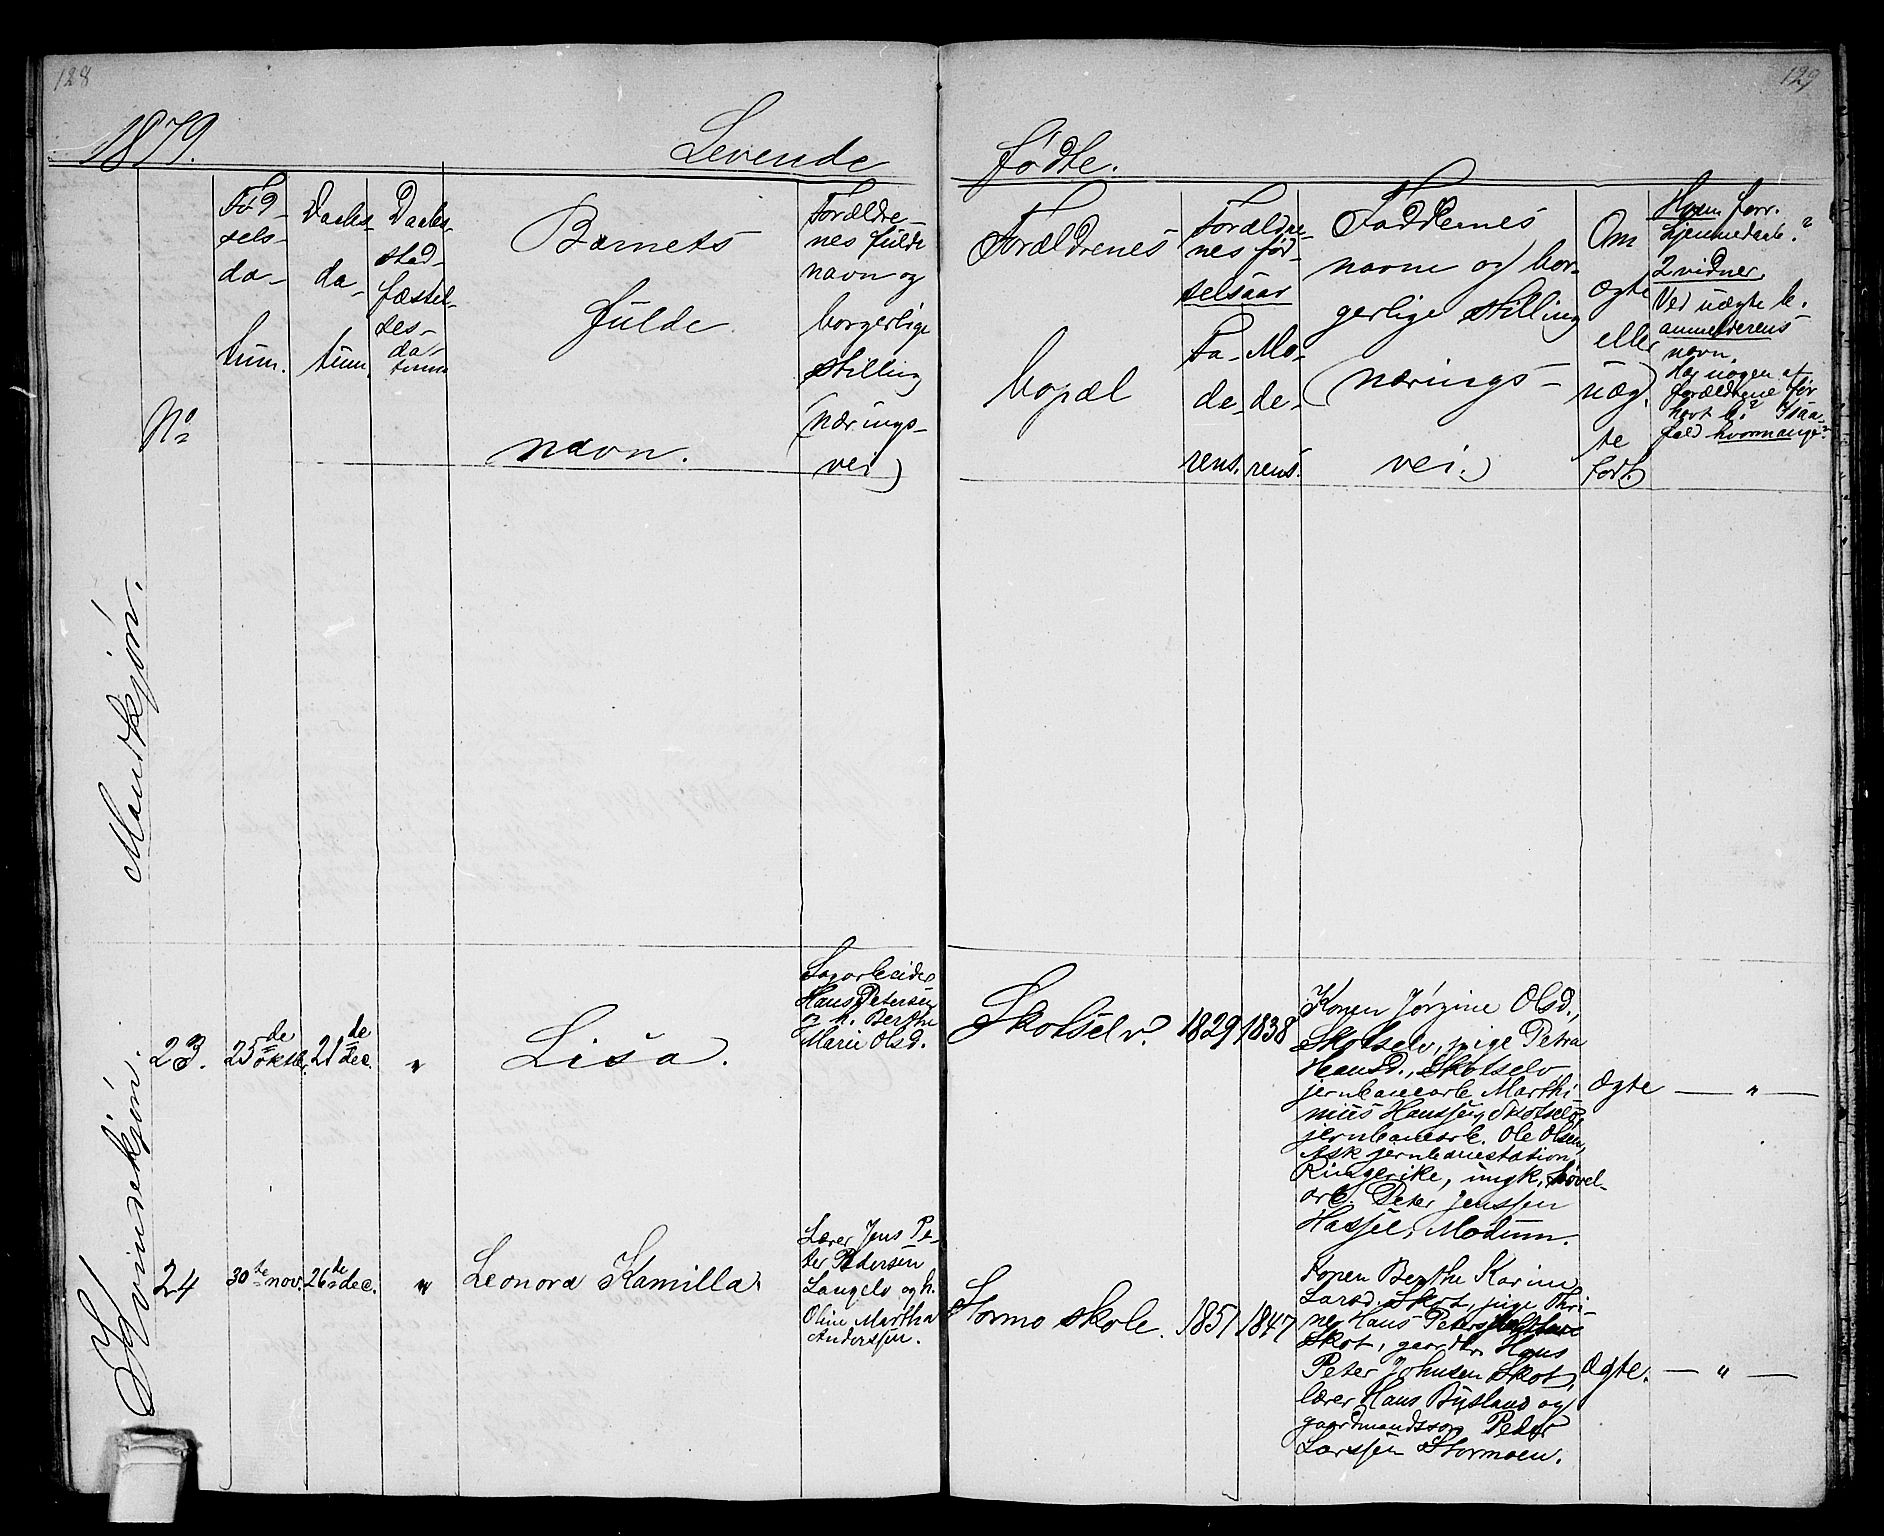 128
129
1879.
Levende
fødte.
Fød-
sels-
da-
tum.
Daabs-
da-
tum.
Daabs-
stad-
fæstel-
ses-
da-
tum
Barnets
fulde
navn.
Forældre-
nes fulde
navn og
borgerlige
stilling
(nærings-
vei)
Forældrenes
bopæl
Forældre-
nes fød-
selsaar
Fa-
de-
rens.
Mo-
de-
rens.
Faddernes
navne og bor-
gerlige stilling
(nærings-
vei.)
Om
ægte
eller
uæg-
te
født.
Hvem forr.
hjemmedaab?
2 vidner.
Ved uægte b.
anmelderens
navn.
Har nogen af
forældrene før
havt b.? Isaa-
fald hvormange?
No
Mandkjøn.
Kvindekjøn.
23.
25de oktbr.
21de dec.
"
Lisa.
Sagarbeider
Hans Petersen
og h. Berthe
Marie Olsd.
Skotselv.
1829
1838
Konen Jørgine Olsd.,
Skotselv, pige Petra
Hansd., Skotselv,
jernbanearb. Marthi-
nius Hanssen, Skotselv,
jernbanearb. Ole Olsen,
Ask jernbanestation,
Ringerike, ungk., høvel-
arb. Peter Jenssen
Hassel, Modum.
Ægte
— " —
24
30te nov.
26de dec.
"
Leonora Kamilla.
Lærer Jens Pe-
ter Pedersen
Langelv og h.
Oline Martha
Anderssen.
Stormo skole.
1851
1847
Konen Berthe Karine
Larsd. Skot, pige Thri-
ne Hans Peters
Skot, gaardbr. Hans
Peter Johnsen Skot,
lærer Hans Bysland og
gaardmandssøn Peder
Larssen Stormoen.
Ægte.
— " —